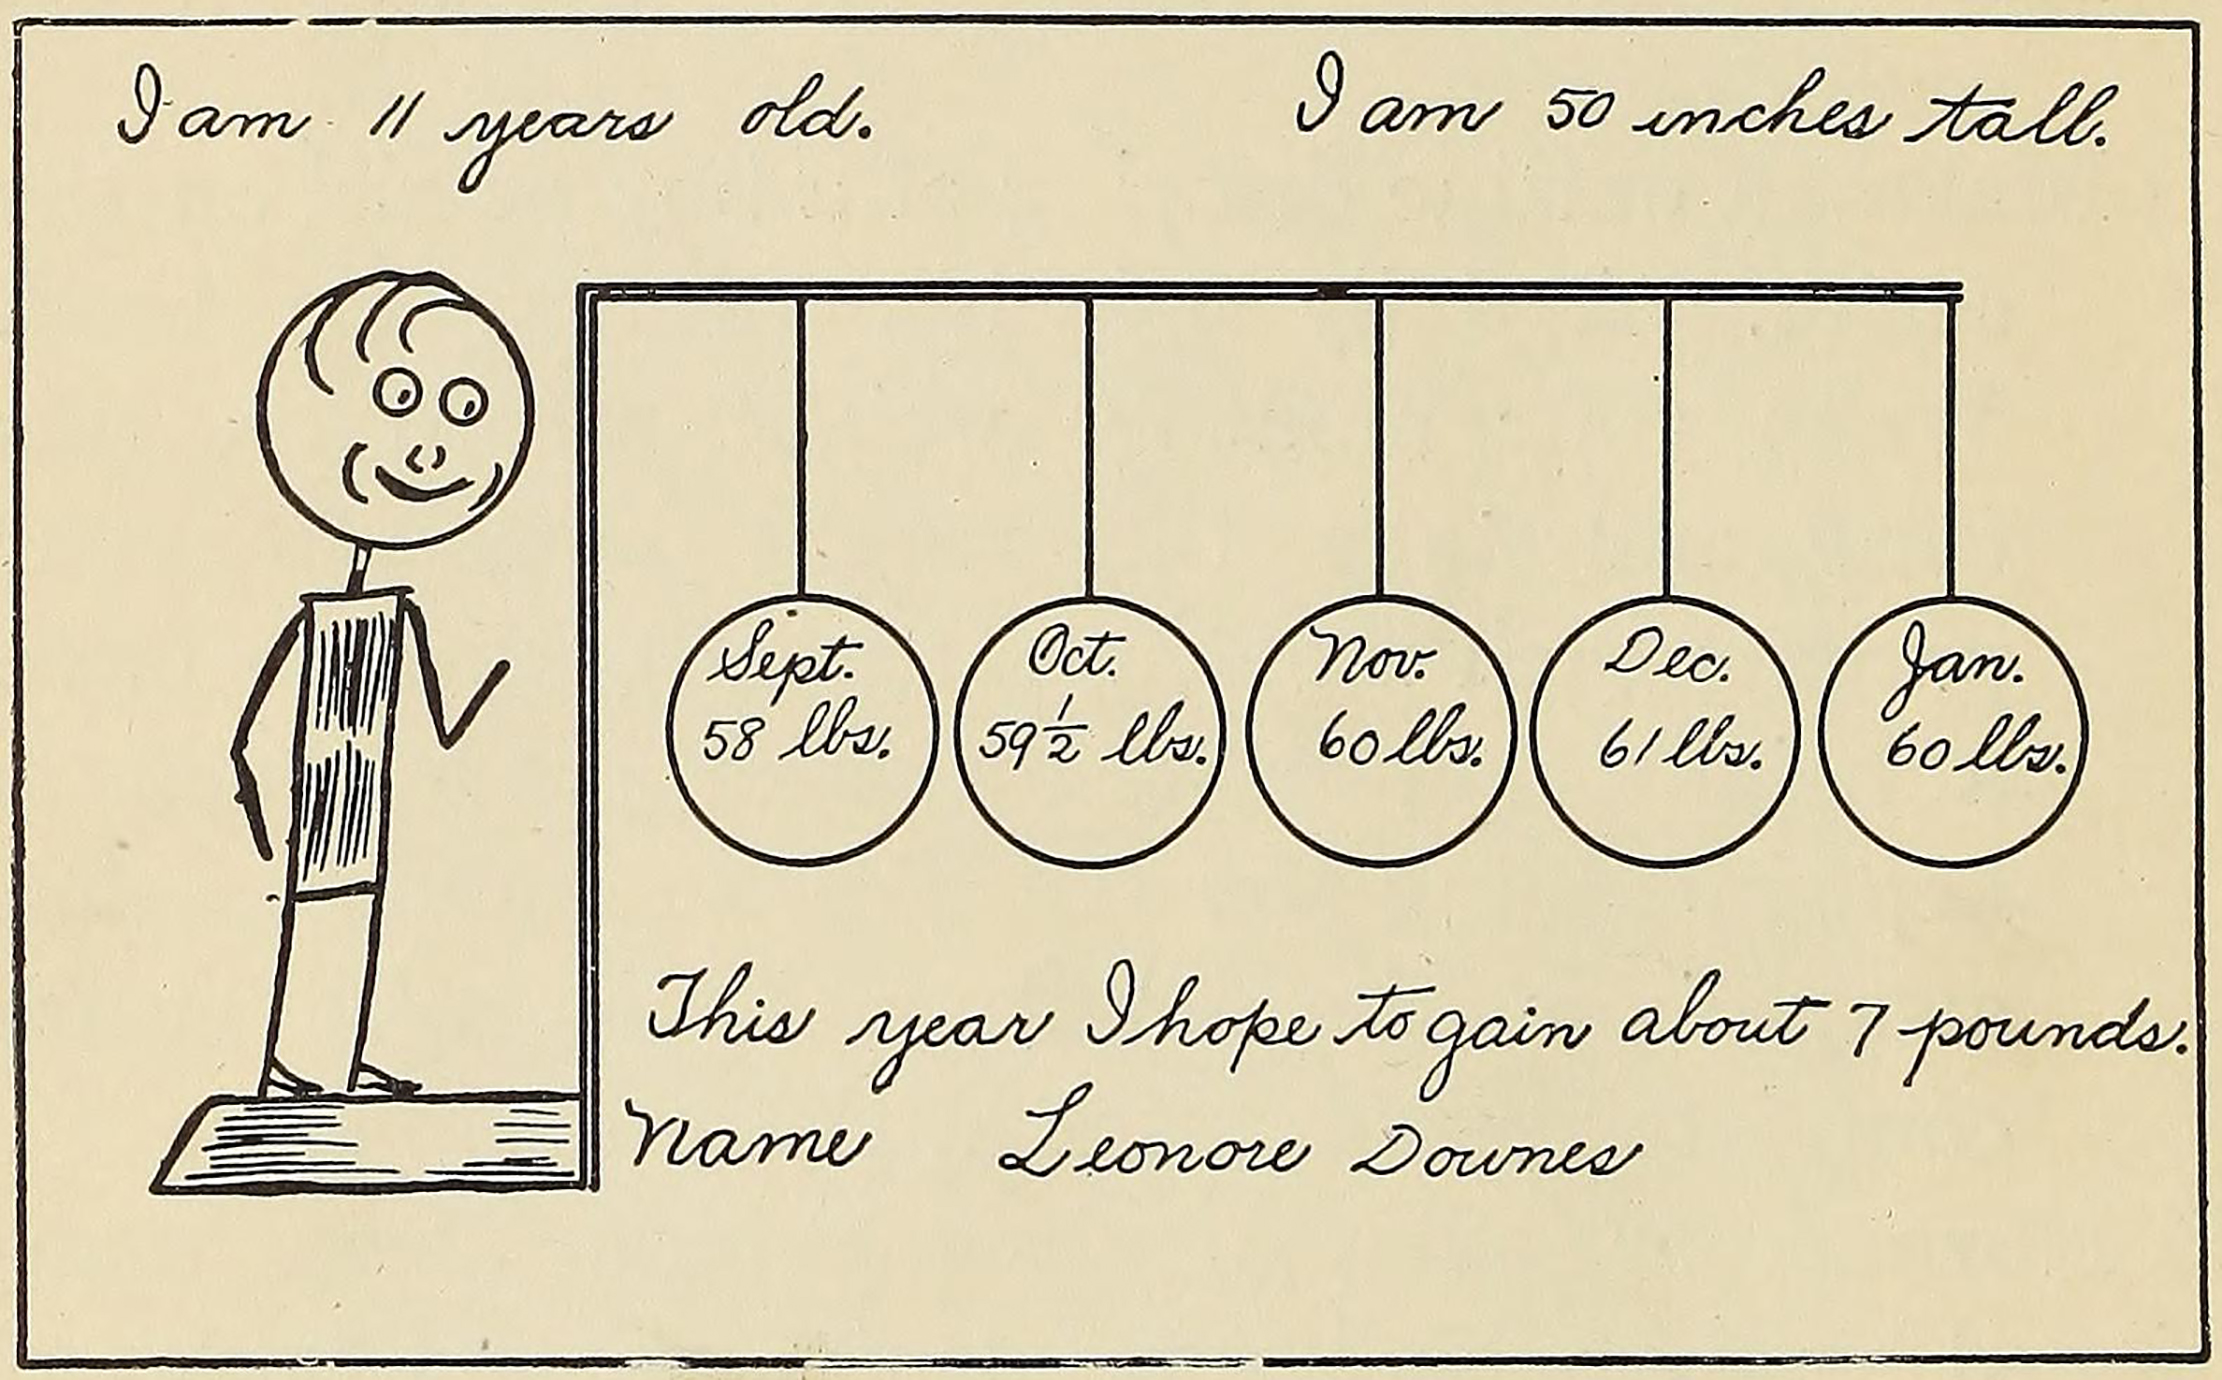 I am 11 years old. I am 50 inches tall.
Sept. Oct. Nov. Dec. Jan.
58 lbs. 59 1/2 lbs. 60 lbs. 61 lbs. 60 lbs.
This year I hope to gain about 7 pounds.
Name Leonore Downes